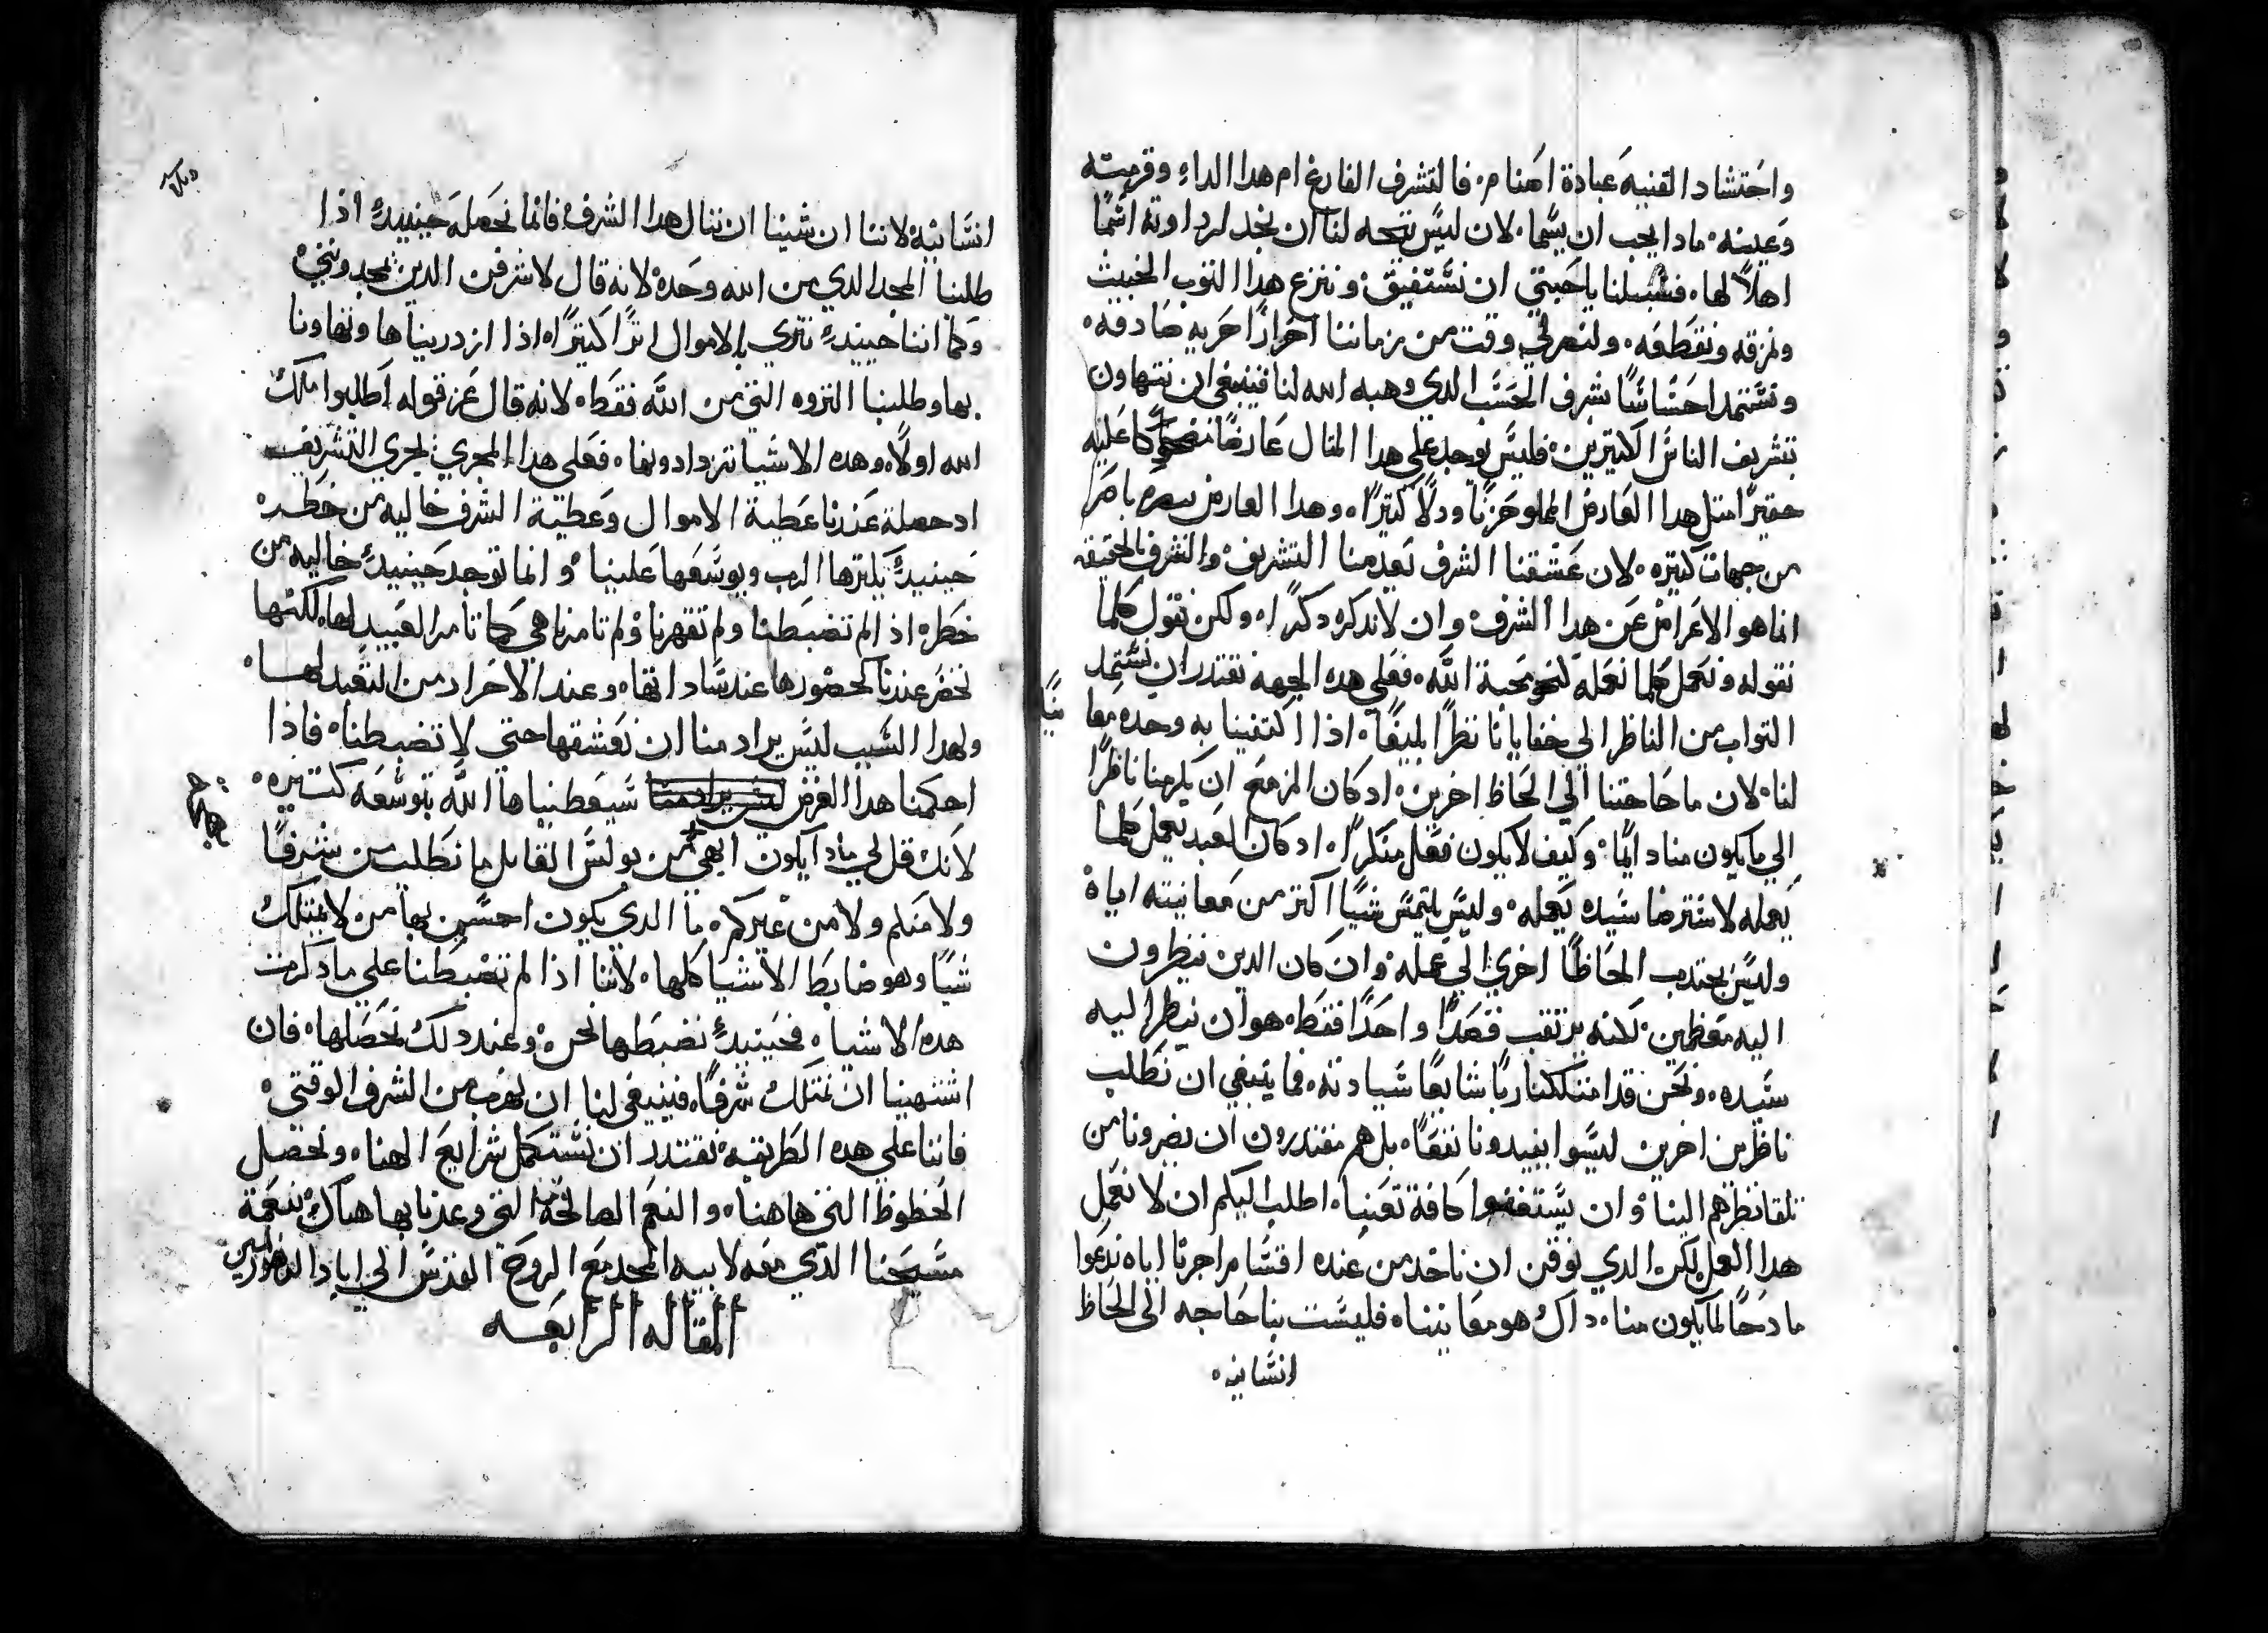 واحتشاد القنيه عبادة اصنام. فالتشرف الفارغ ام هدا الداء وقرمته
وعينه. مادا يجب ان يسما. لان ليس يتجه لنا ان نجد لرداوته اسمًا
اهلاً لها. فسبيلنا ياحبتي ان نستفيق. وننزع هدا التوب الخبيث
ونمزقه ونقطعه. ولنصر في وقت من زماننا احرارًا حريه صادقه.
ونستمد احساسًا شرف الحسب الدي وهبه الله لنا فينبغي ان نتهاون
بتشريف الناس الكتيرين. فليس يوجد علي هدا المتال عارضًا مضحوكًا عليه
حقيرًا متل هدا العارض المملو حزنًا ودلاً كتيرًا. وهدا العارض باصر
من جهات كتيره. لان عشقنا الشرف تعدمنا التشريف. والشرف بالحقيقه
انما هو الاعراض عن هدا الشرف. وان لا ندكره دكرًا. ولكن نقول كلما
نقوله ونعمل كلما نعمله لنحو محبة الله. فعلي هده الجهه نقتدر ان نستمد
التواب من الناظر الي خفايانا نظرًا بليغًا. ادا اكتفينا به وحده معاينًا
لنا. لان ما حاجتنا الي الحاظ اخرين. اد كان المزمع ان يكرمنا ناظرًا
الي ما يكون منا دايمًا. وكيف لا يكون فعل منكرًا. اد كان العبد يعمل كلما
يعمله لاسترضا سيده يعمله. وليس يلتمس شيًا اكتر من معاينته اياه
وليس يجتدب الحاظًا اخري الي عمله. وان كان الدين ينظرون
اليه معظمين. لكنه يرتقب قصدًا واحدًا فقط. هو ان ينظر اليه
سيده. ونحن قد امتلكنا ربًا شايعًا سيادته. فما ينبغي ان نطلب
ناظرين اخرين ليسوا يفيدونا نفعًا. بل هم مقتدرون ان يضرونا من
تلقا نظرهم الينا. وان كافة تعبنا. اطلب اليكم ان لا نعمل
هدا العمل لكن الدي نوقن ان ناخد من عنده اقسام اجرنا اياه ندعوا
مادحًا لما يكون منا. داك هو معايننا. فليست بنا حاجه الي الحاظ
انسانيه.
انسانيه. لاننا ان شينا ان ننال هدا الشرف. فانما نحصله حينيدٍ اذا
طلبنا المجد الدي من الله وحده لانه قال لاشرفن الدين يمجدونني.
وكما اننا حينيدٍ نتري بالاموال اترًا كتيرًا. اذا ازدريناها وتهاونا
بها وطلبنا التروه التي من الله فقط. لانه قال عز قوله اطلبوا ملك
الله اولاً. وهده الاشيا تزدادونها. فعلي هدا المجري يجري التشريف
اد حصلة عندنا عطية الاموال وعطية الشرف خاليه من خطره
حينيدٍ يكترها الرب ويوسعها علينا. وانما توجد حينيدٍ خاليه من
خطره اذا لم تضبطنا ولم تقهرنا ولم تامرنا هي كما تامر العبيد لها. لكنها
تحضر عندنا كحضورها عند ساداتها. وعند الاحرار من التعبد لها.
ولهدا السبب ليس يراد منا ان نعشقها حتي لا تضبطنا. فاذا
احكمنا هدا الغرض سيعطيناها الله بتوسعه كتيره.
لانك قل لي مادا يكون ابهي من بولس القايل ما نطلب من شرفًا
ولا منكم ولا من غيركم. ما الدي يكون احسن بها من لا يمتلك
شيًا وهو ضابط الاشيا كلها. لاننا اذا لم تضبطنا علي ما دكرت
هده الاشيا. فحينيدٍ نضبطها نحن. وعند دلك نحصلها. فان
اشتهينا ان نمتلك شرفًا. فينبغي لنا ان نهرب من الشرف الوقتي.
فاننا علي هده الطريقه نقتدر ان نستكمل شرايع الهنا. ونحصل
الحظوظ التي هاهنا. والنعم الصالحة التي وعدنا بها هناك بنعمة
مسيحنا الدي معه لابيه المجد مع الروح القدس الي اباد الدهور امين
المقاله الرابعه